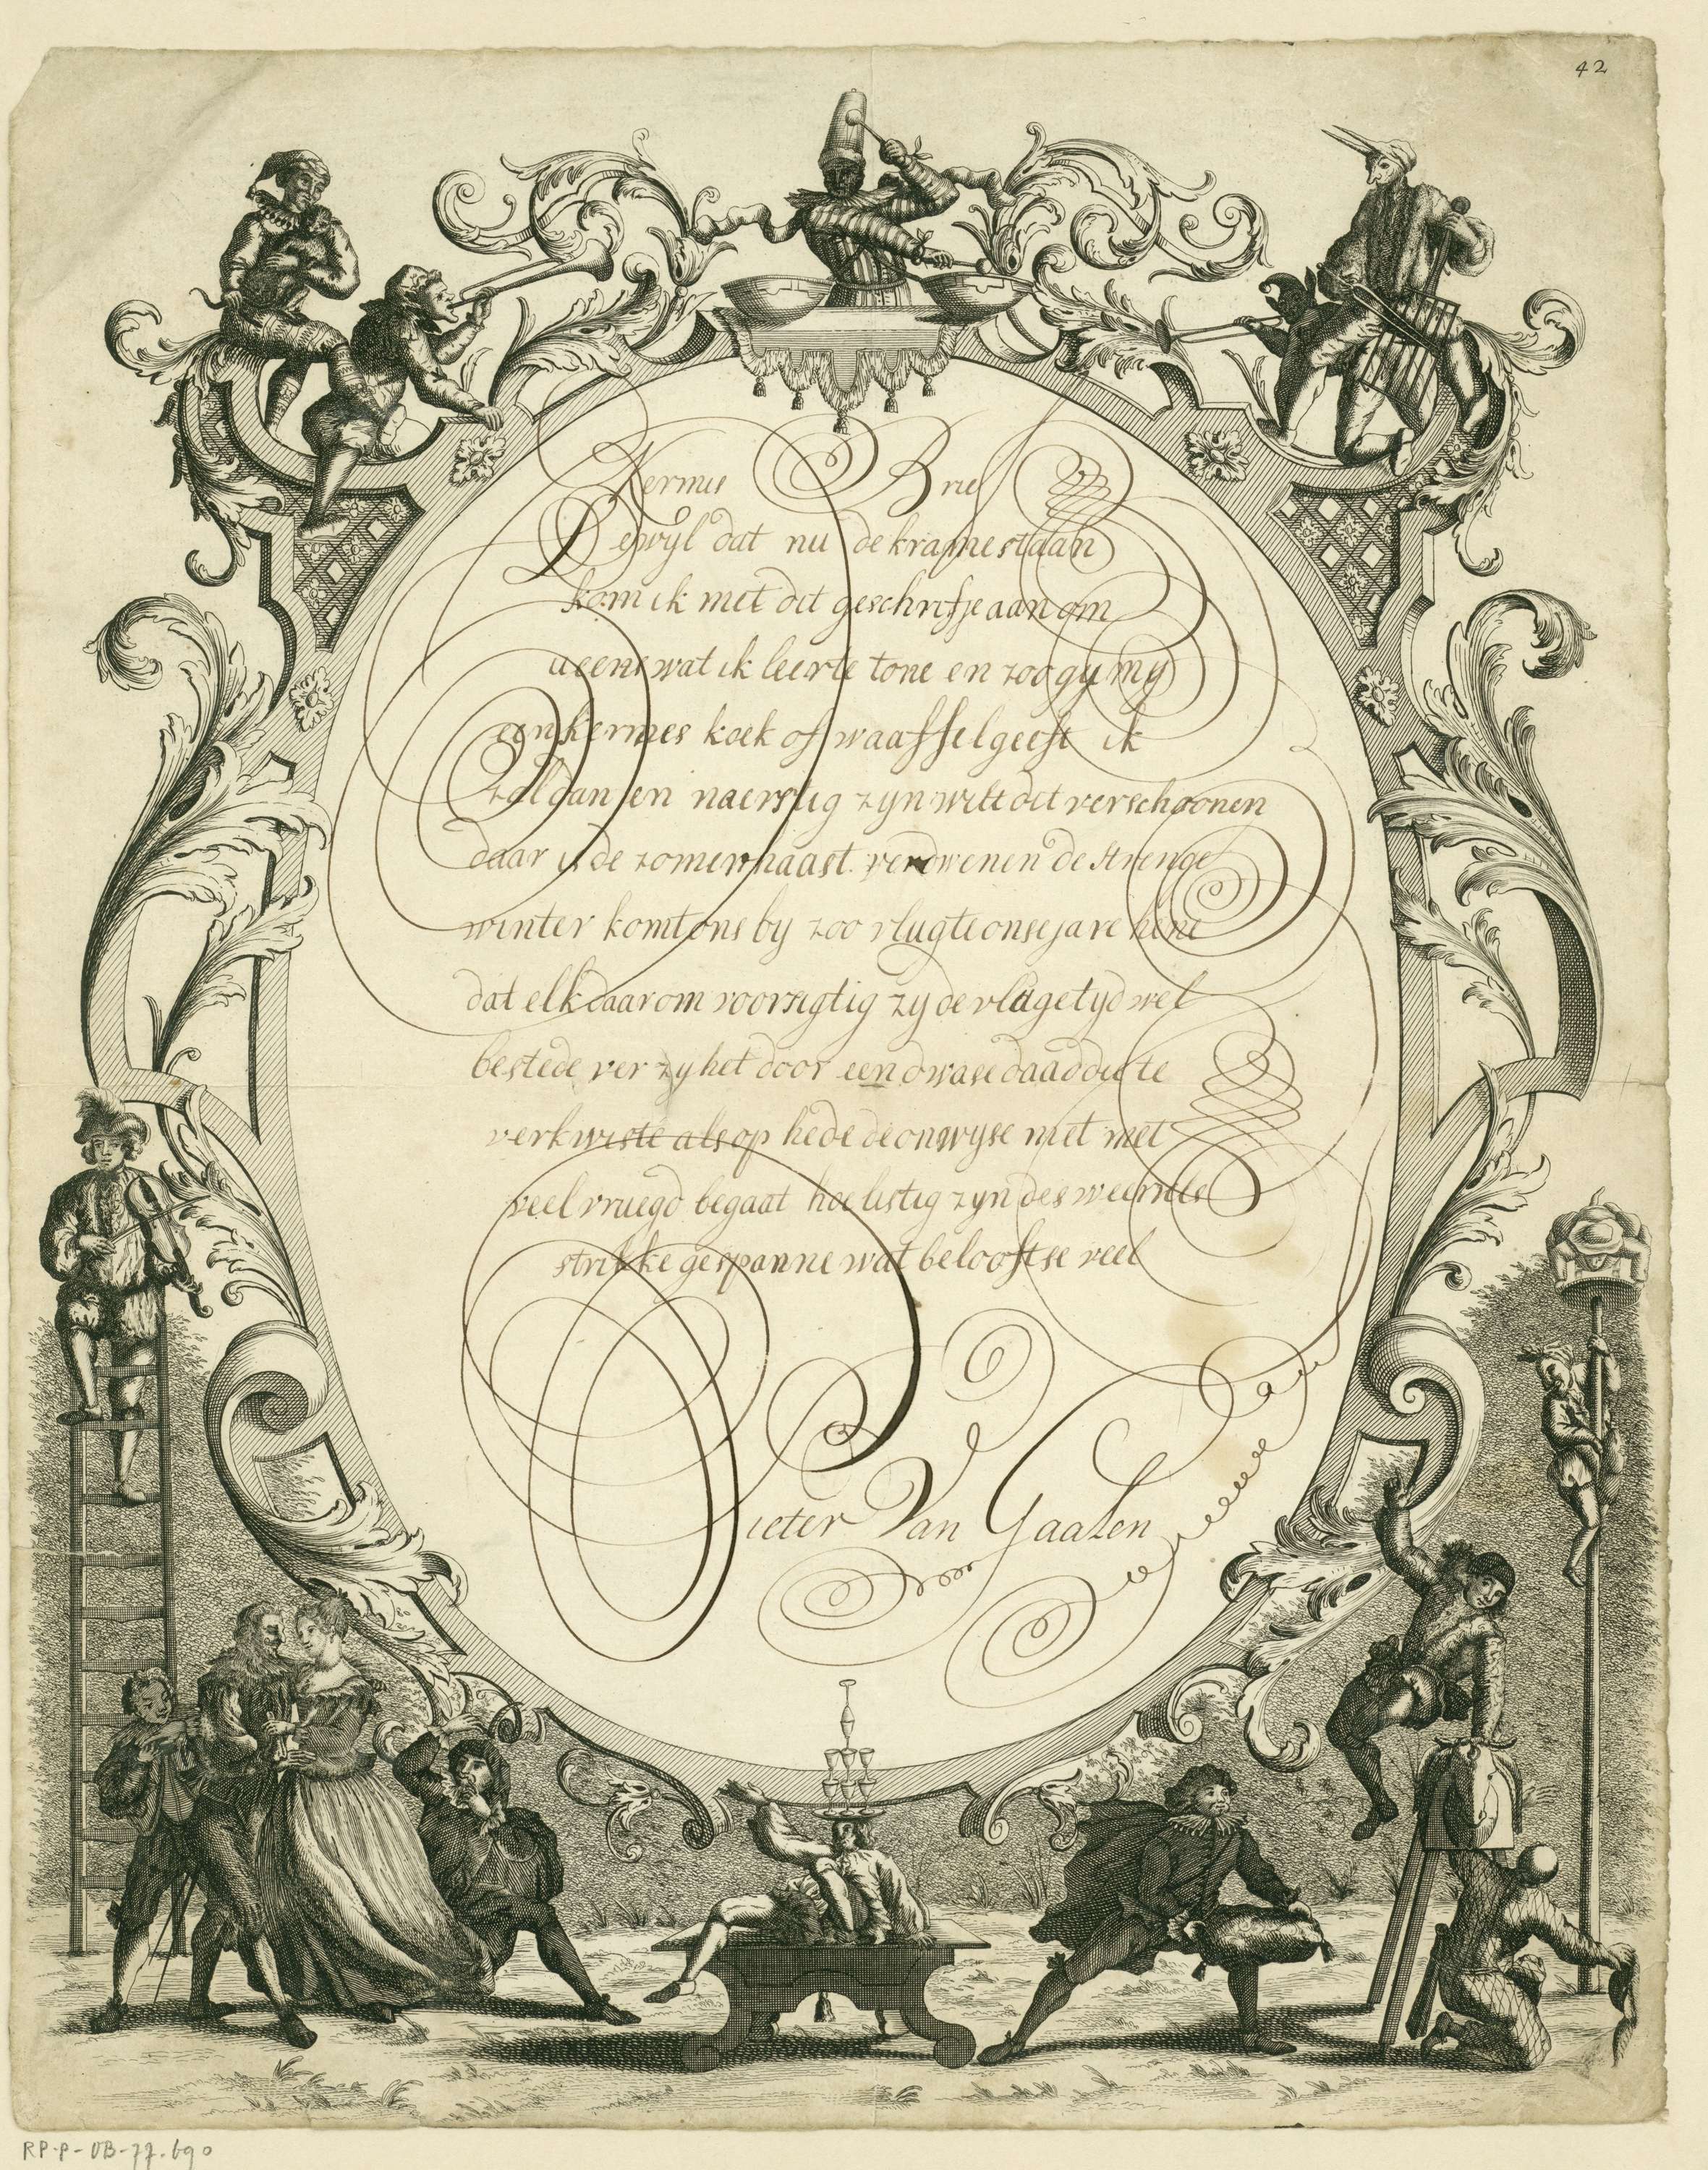 42
Kermis Brief
Dewyl dat nu de krame staan
kom ik met dit geschrifje aan om
u eens wat ik leerte tone en zoo gy my
een kermes koek of waaffel geeft ik
zal dan en naerstig zyn wilt dit verschoonen
daar is de zomer haast verdwenen de strenge
winter komt ons by zoo vlugte onse jare hene
dat elk daarom voorsigtig zy de vlugge tyd wel
bestede ver zy het door een dwase daad die te
verkwiste als op hede de onwyse niet met
veel vruegd begaat hoe listig zyn des weerelts
strikke gespanne wat belooft se veel
Pieter Van Gaalen
RP-P-OB-77.690